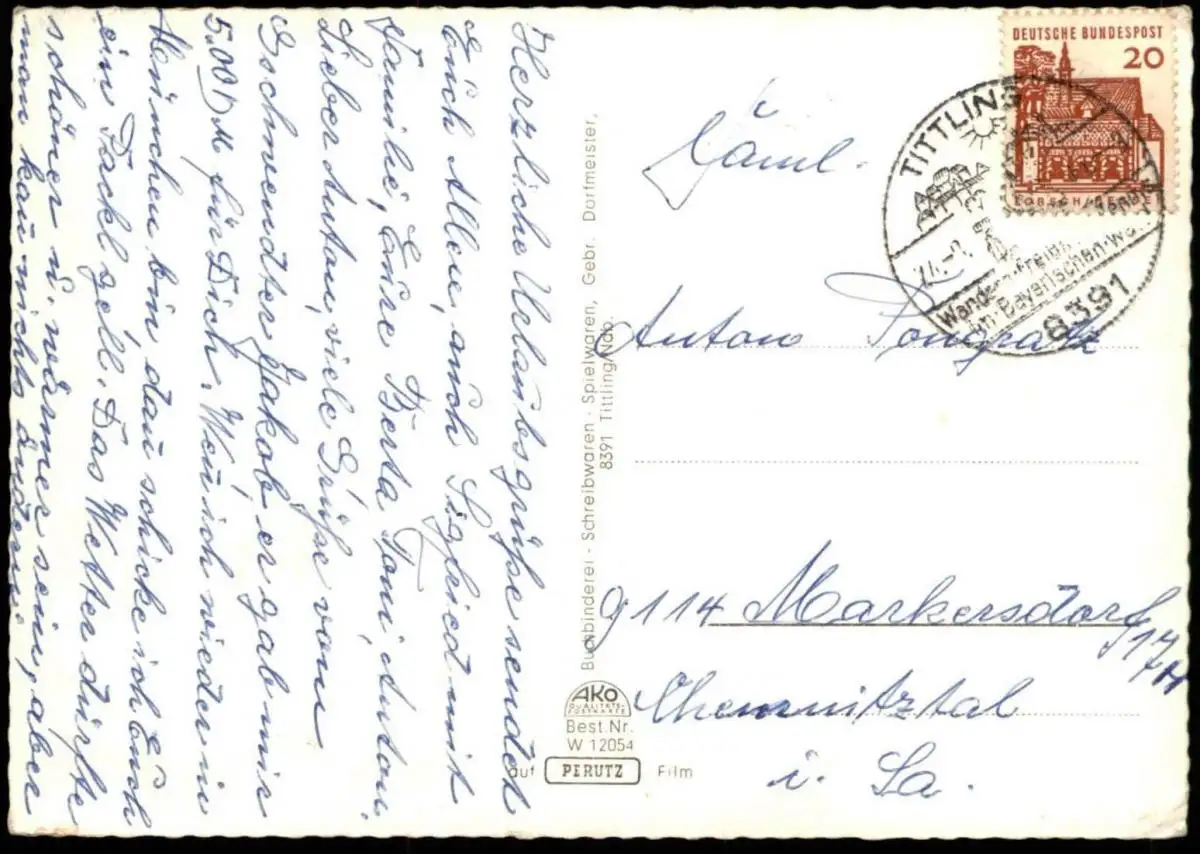 Herzliche Urlaubsgrüße sendet
Euch Allen, auch Siglried mit
Familie, Eure Berta Toni, Anton.
Lieber Anton, viele Grüße vom
Gschwendter Jakob, er gab mir
5.00 DM für Dich. Wen̄ ich wieder in
München bin dan̄ schicke ich Euch
ein Päckl gell. Das Wetter dürfte
schöner u. wärmer sein, aber
man kan̄ nichts ändern.
Buchbinderei - Schreibwaren - Spielwaren, Gebr. Dorfmeister,
8391 Tittling/Ndb.
AKO
QUALITÄTS-
POSTKARTE
Best.Nr.
W 12054
auf PERUTZ Film
DEUTSCHE BUNDESPOST
20
LORSCH/HESSEN
TITTLING
Wandern
im Bayerischen
8391
Faml.
Anton Pongratz
9114 Markersdorf
Chemnitztal
i. Sa.